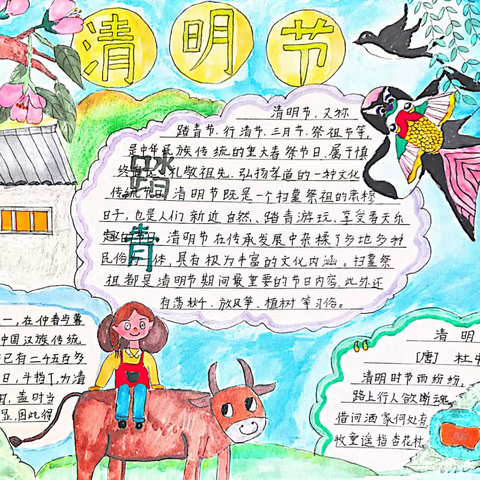 清明节
清明节，又称
踏青节、行清节、三月节、祭祖节等，
是中华民族传统的重大春祭节日，属于慎
终追远、礼敬祖先、弘扬孝道的一种文化
传统节日。清明节既是一个扫墓祭祖的肃穆
日子，也是人们亲近自然、踏青游玩、享受春天乐
趣的节日。清明节在传承发展中杂糅了多地多种
民俗为一体，具有极为丰富的文化内涵。扫墓祭
祖都是清明节期间最重要的节日内容，此外还
有荡秋千、放风筝、植树等习俗。
踏
青
一，在仲春与暮
中国汉族传统
已有二千五百多
日，斗指丁，为清
明，盖时当
显，因此得
清明
[唐] 杜牧
清明时节雨纷纷，
路上行人欲断魂。
借问酒家何处有，
牧童遥指杏花村